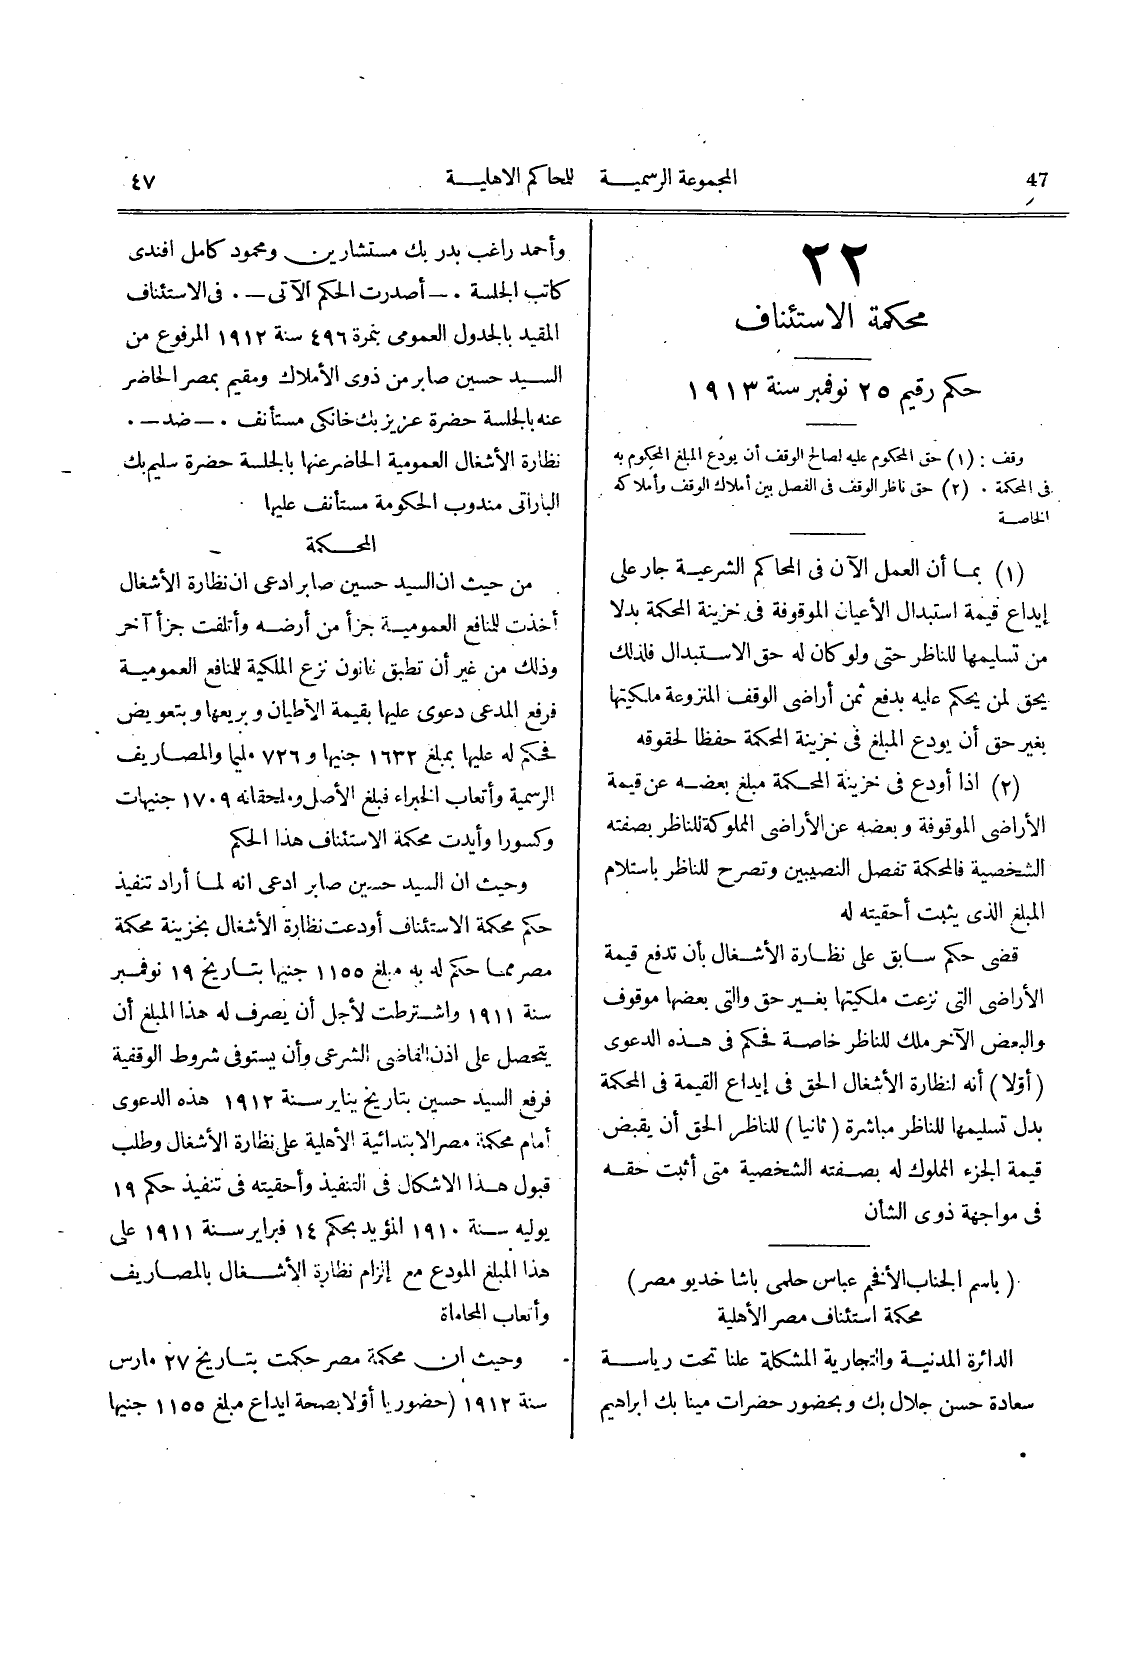 47
المجموعة الرسمية للمحاكم الاهلية
٤٧
٢٢
محكمة الاستئناف
حكم رقيم ٢٥ نوفمبر سنة ١٩١٣
وقف : (١) حق المحكوم عليه لصالح الوقف أن يودع المبلغ المحكوم به
فى المحكمة . (٢) حق ناظر الوقف فى الفصل بين أملاك الوقف وأملاكه
الخاصة
(١) بما أن العمل الآن فى المحاكم الشرعية جار على
إيداع قيمة استبدال الأعيان الموقوفة فى خزينة المحكمة بدلا
من تسليمها للناظر حتى ولو كان له حق الاستبدال فلذلك
يحق لمن يحكم عليه بدفع ثمن أراضى الوقف المنزوعة ملكيتها
بغير حق أن يودع المبلغ فى خزينة المحكمة حفظا لحقوقه
(٢) اذا أودع فى خزينة المحكمة مبلغ بعضه عن قيمة
الأراضى الموقوفة وبعضه عن الأراضى المملوكة للناظر بصفته
الشخصية فالمحكمة تفصل النصيبين وتصرح للناظر باستلام
المبلغ الذى يثبت أحقيته له
قضى حكم سابق على نظارة الأشغال بأن تدفع قيمة
الأراضى التى نزعت ملكيتها بغير حق والتى بعضها موقوف
والبعض الآخر ملك للناظر خاصة فحكم فى هذه الدعوى
(أوّلا) أنه لنظارة الأشغال الحق فى إيداع القيمة فى المحكمة
بدل تسليمها للناظر مباشرة (ثانيا) للناظر الحق أن يقبض
قيمة الجزء المملوك له بصفته الشخصية متى أثبت حقه
فى مواجهة ذوى الشأن
( باسم الجناب الأفخم عباس حلمى باشا خديو مصر )
محكمة استئناف مصر الأهلية
الدائرة المدنية والتجارية المشكلة علنا تحت رياسة
سعادة حسن جلال بك وبحضور حضرات مينا بك ابراهيم
وأحمد راغب بدر بك مستشارين ومحمود كامل افندى
كاتب الجلسة . — أصدرت الحكم الآتى — . فى الاستئناف
المقيد بالجدول العمومى بنمرة ٤٩٦ سنة ١٩١٢ المرفوع من
السيد حسين صابر من ذوى الأملاك ومقيم بمصر الحاضر
عنه بالجلسة حضرة عزيز بك خانكى مستأنف . — ضد — .
نظارة الأشغال العمومية الحاضر عنها بالجلسة حضرة سليم بك
الباراتى مندوب الحكومة مستأنف عليها
المحكمة
من حيث ان السيد حسين صابر ادعى ان نظارة الأشغال
أخذت للمنافع العمومية جزأ من أرضه وأتلفت جزأ آخر
وذلك من غير أن تطبق قانون نزع الملكية للمنافع العمومية
فرفع المدعى دعوى عليها بقيمة الأطيان وبريعها وبتعويض
فحكم له عليها بمبلغ ١٦٣٢ جنيها و ٧٢٦ مليما والمصاريف
الرسمية وأتعاب الخبراء فبلغ الأصل وملحقاته ١٧٠٩ جنيهات
وكسورا وأيدت محكمة الاستئناف هذا الحكم
وحيث ان السيد حسين صابر ادعى انه لما أراد تنفيذ
حكم محكمة الاستئناف أودعت نظارة الأشغال بخزينة محكمة
مصر مما حكم له به مبلغ ١١٥٥ جنيها بتاريخ ١٩ نوفمبر
سنة ١٩١١ واشترطت لأجل أن يصرف له هذا المبلغ أن
يتحصل على اذن القاضى الشرعى وأن يستوفى شروط الوقفية
فرفع السيد حسين بتاريخ يناير سنة ١٩١٢ هذه الدعوى
أمام محكمة مصر الابتدائية الأهلية على نظارة الأشغال وطلب
قبول هذا الاشكال فى التنفيذ وأحقيته فى تنفيذ حكم ١٩
يوليه سنة ١٩١٠ المؤيد بحكم ١٤ فبراير سنة ١٩١١ على
هذا المبلغ المودع مع إلزام نظارة الأشغال بالمصاريف
وأتعاب المحاماة
وحيث ان محكمة مصر حكمت بتاريخ ٢٧ مارس
سنة ١٩١٢ (حضوريا أوّلا بصحة ايداع مبلغ ١١٥٥ جنيها